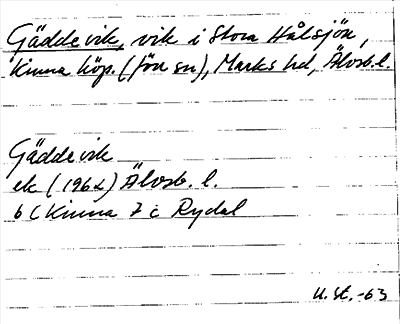 Gäddevik, vik i Stora Hålsjön,
Kinna köp. (förr sn), Marks hd, Älvsb. l.
Gäddevik
ek (1962) Älvsb. l.
6 C Kinna 7 c Rydal
U. St. -63